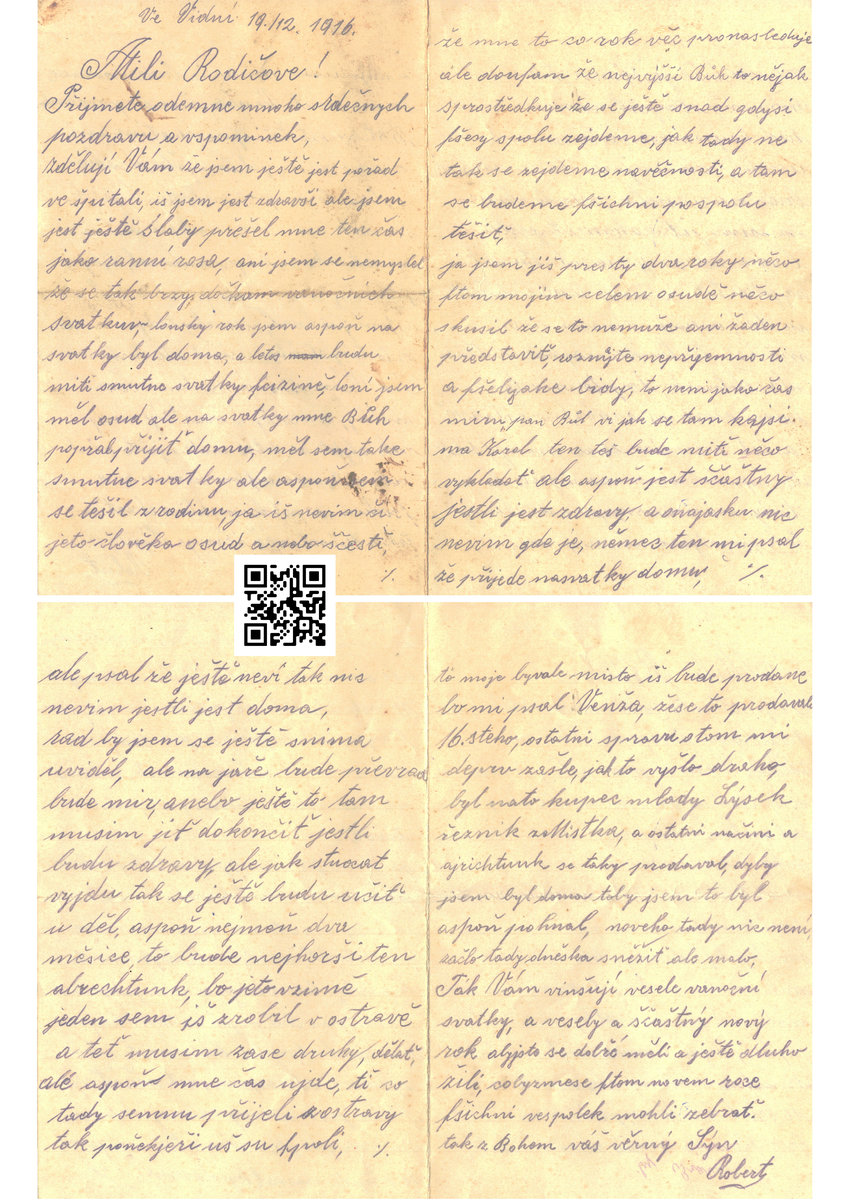 Ve Vidni 19./12. 1916.
Mili Rodičove!
Přijmete odemne mnoho srdečnych
pozdravu a vspominek,
zdělují Vám že jsem ještě jest pořad
ve špitali, iš jsem jest zdravši ale jsem
jest ještě slaby přešel mne ten čas
jako ranní rosa, ani jsem se nemyslel
že se tak brzy dočkam vanočnich
svatkuv, lonsky rok jsem aspoň na
svatky byl doma, a letos budu
miti smutne svatky fcizině, loni jsem
měl osud ale na svatky mne Bůh
popřal přijiť domu, měl sem take
smutne svatky ale aspoň sem
se těšil z rodinu, ja iš nevim
jeto člověka osud a nebo ščesti,
%.
že mne to co rok věc pronasleduje
ale doufam že nejvyšši Bůh to nějak
sprostředkuje že se ještě snad gdysi
fšecy spolu zejdeme, jak tady ne
tak se zejdeme navěčnosti, a tam
se budeme fšichni pospolu
těšiť,
ja jsem jiš presty dva roky něco
ftom mojim celem osudě něco
skusil že se to nemuže ani žaden
představiť, roznůjte nepřijemnosti
a fšelijake bidy, to neni jako čas
miru, pan Bůh vi jak se tam kajsi
ma Karel ten teš bude miti něco
vykladať ale aspoň jest sčaštny
jestli jest zdravy, a oňajasku nic
nevim gde je, němec ten mi psal
že přijede nasvatky domu, %.
ale psal že ještě nevi tak nic
nevim jestli jest doma,
rad by jsem se ještě snima
uviděl, ale na jaře bude převrad
bude mir, anebo ještě to tam
musim jiť dokončiť jestli
budu zdravy, ale jak stucat
vyjdu tak se ještě budu učiť
u děl, aspoň nejmoň dva
měsice, to bude nejhorši ten
abrechtunk, bo jeto vzimě
jeden sem iš zrobil v ostravě
a teť musim zase druhy, dělať,
ale aspoň mne čas ujde, ti co
tady semnu přijeli zostravy
tak poňekjeři uš su fpoli, %.
to moje byvale misto iš bude prodane
bo mi psal Venža, žese to prodavalo
16. steho, ostatni spravu stom mi
depru zašle, jak to vyšlo draho,
byl nato kupec mlady Lýsek
řeznik zMistka, a ostatni načini a
ajrichtunk se taky prodaval, dyby
jsem byl doma toby jsem to byl
aspoň pohnal, noveho tady nic není,
začlo tady dněska sněžiť ale malo,
Ták Vám vinšují vesele vanočni
svatky, a vesely a ščaštný nový
rok abyjsto se dobře měli a ještě dluho
žili, cobyzmese ftom novem roce
fšichni vespolek mohli zebrať.
tak z Bohom váš věrný Sýn
Robert